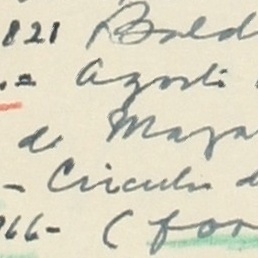 821 Bald
Agosti
de Maga
- Circulo d
966- (for